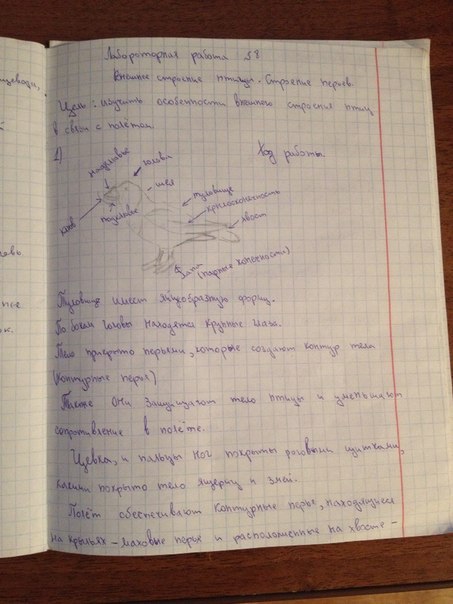 Лабораторная работа №8
Внешнее строение птицы. Строение перьев.
Цель: изучить особенности внешнего строения птиц
в связи с полётом.
1)
Ход работы
надклювье
голова
шея
туловище
крылоконечность
хвост
клюв
подклювье
лапы (парные конечности)
Туловище имеет яйцеобразную форму.
По бокам головы находятся крупные глаза.
Тело прикрыто перьями, которые создают контур тела
(контурные перья)
Также они защищают тело птицы и уменьшают
сопротивление в полёте.
Цевка, и пальцы ног покрыты роговыми щитками,
какими покрыто тело ящериц и змей.
Полёт обеспечивают контурные перья, находящиеся
на крыльях - маховые перья и расположенные на хвосте -